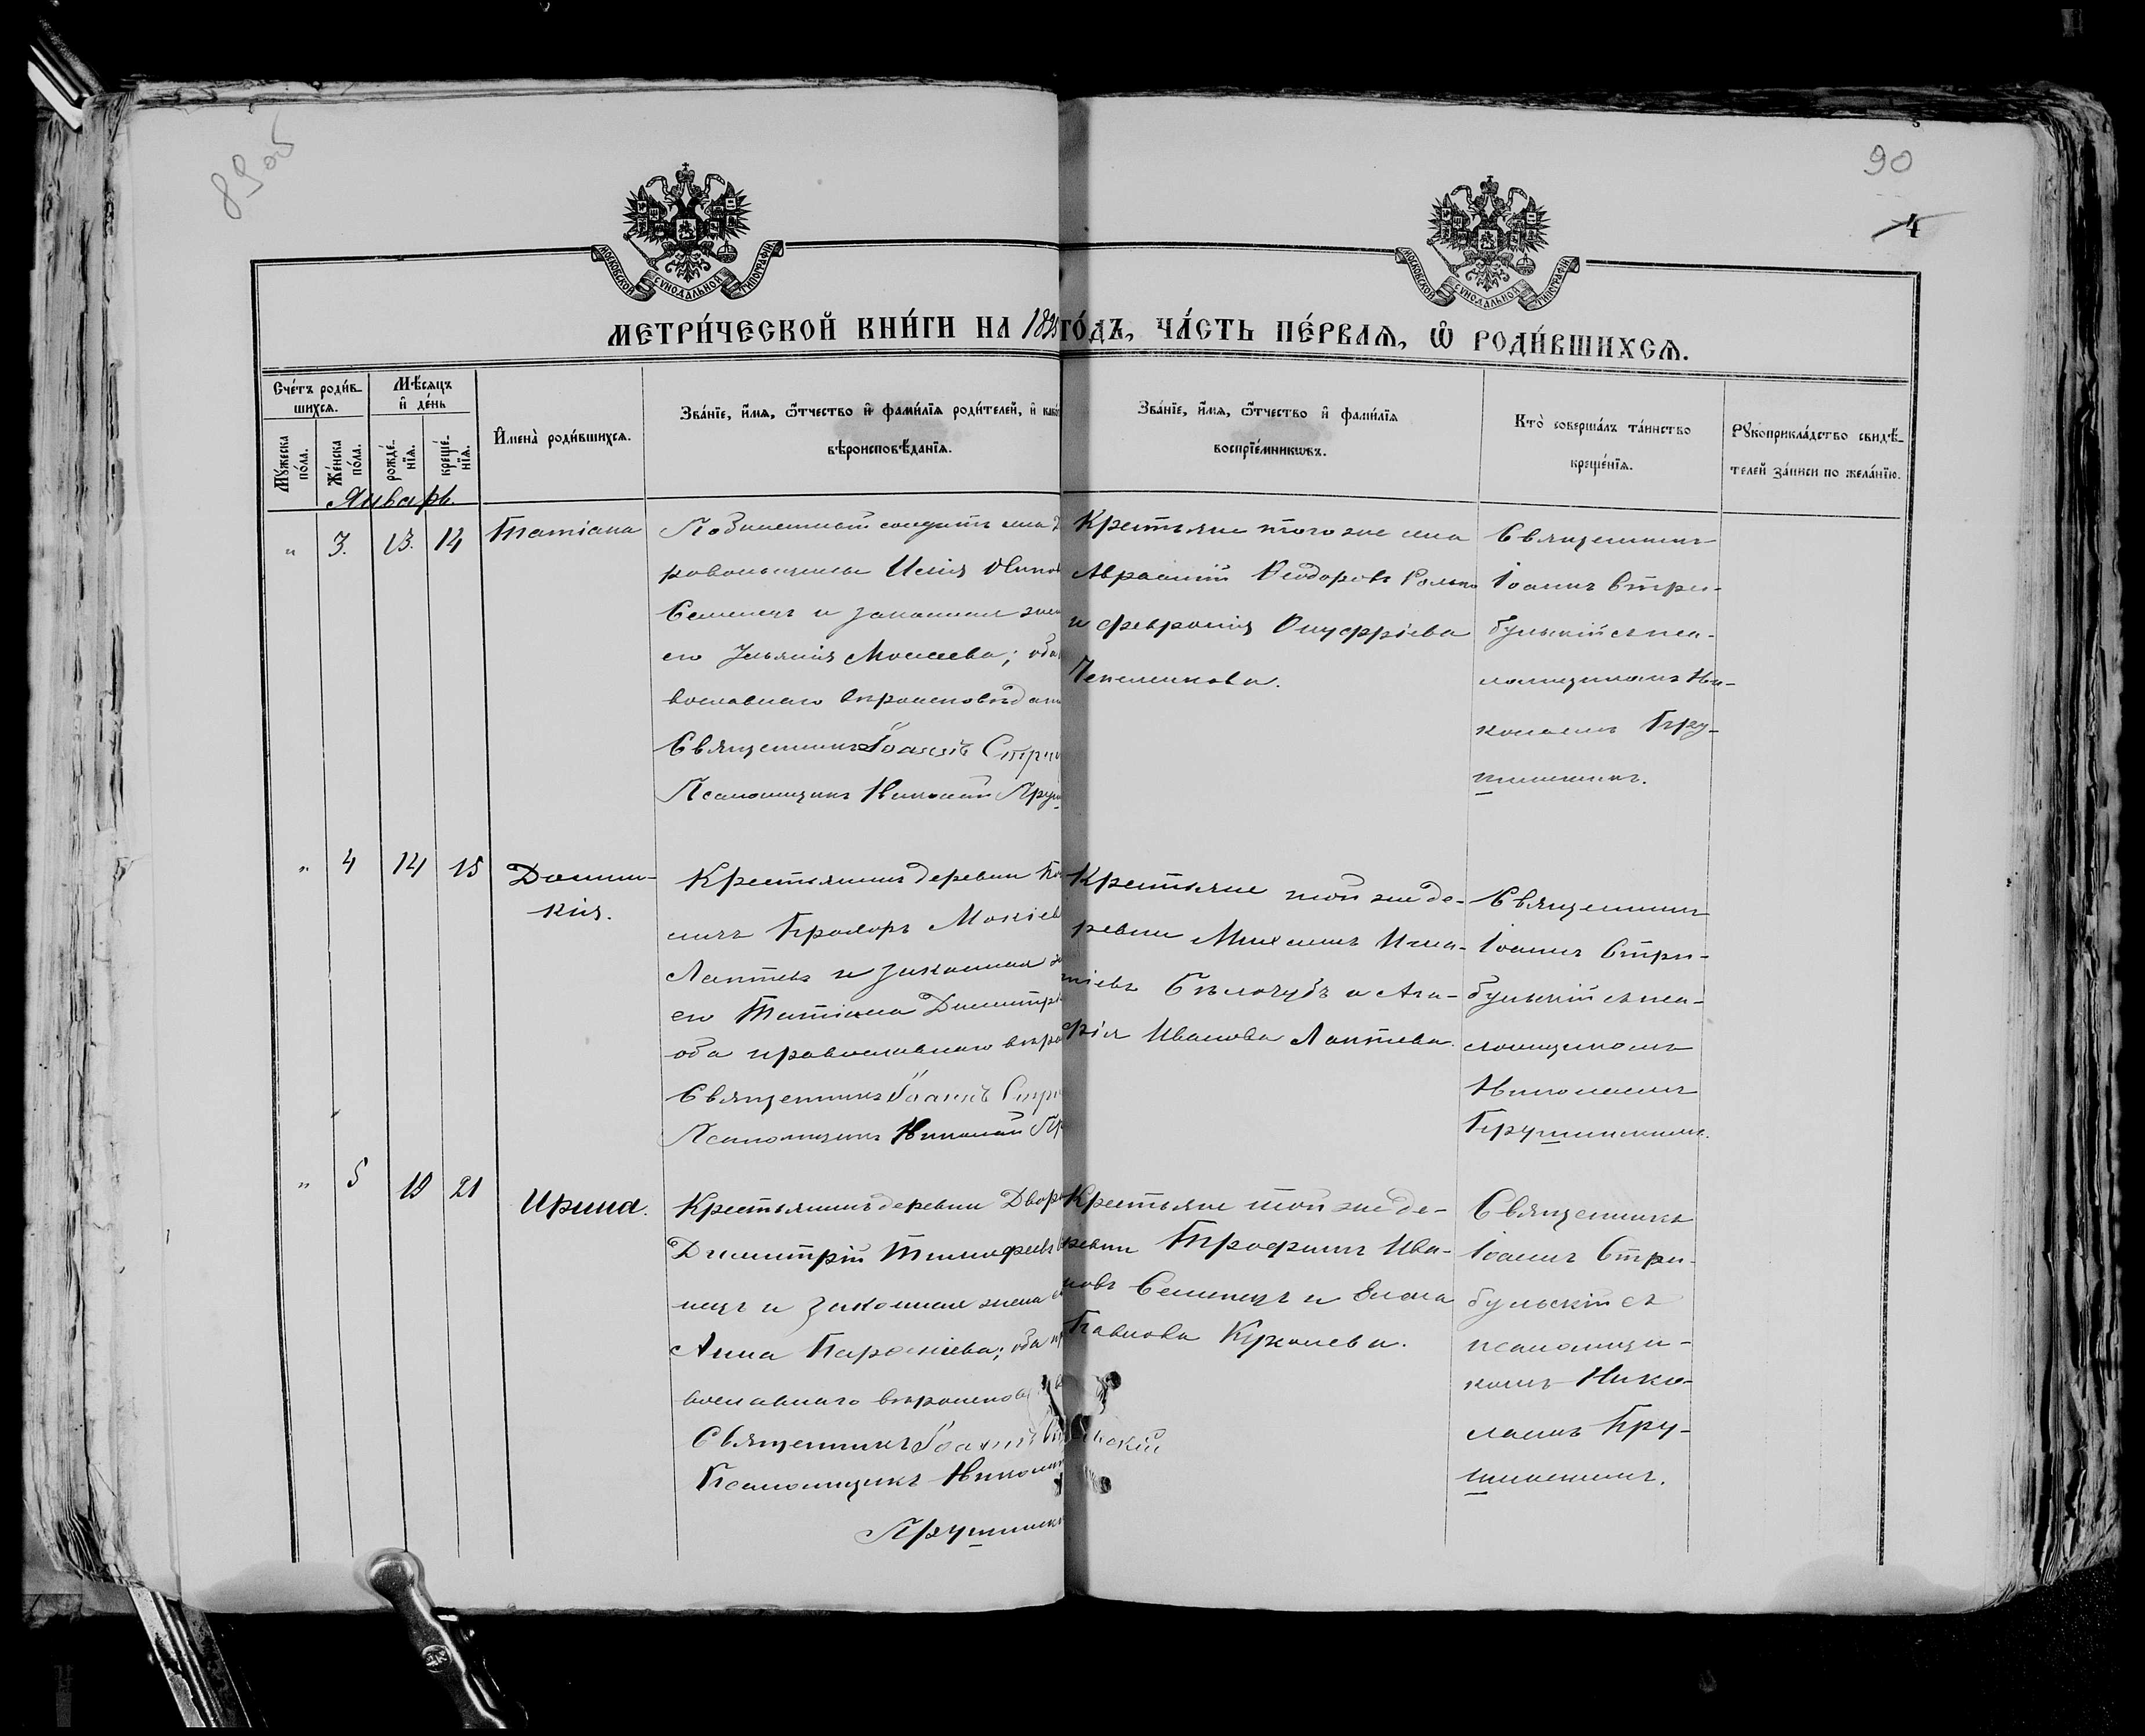 89об
90
4
МОСКОВСКОЙ СУНОДАЛЬНОЙ ТИПОГРАФІИ
МОСКОВСКОЙ СУНОДАЛЬНОЙ ТИПОГРАФІИ
МЕТРИ́ЧЕСКОЙ КНИ́ГИ НА 189 ГО́ДЪ, ЧА́СТЬ ПЕ́РВАѦ, Ѡ҆ РОДИ́ВШИХСѦ.
Сче́тъ роди́в-
шихсѧ.
Мꙋ́жеска по́ла.
Же́нска по́ла.
Мѣ́сѧцъ
и҆ де́нь
рожде́-нїѧ.
креще́-нїѧ.
И҆мена̀ роди́вшихсѧ.
Зва́нїе, и҆́мѧ, ѻ҆́тчество и҆ фамн́лїѧ роди́телей, и҆ како́
вѣроисповѣ́данїѧ.
Зва́нїе, и҆́мѧ, ѻ҆́тчество и҆ фами́лїѧ
воспрїе́мникѡвъ.
Кто̀ соверша́лъ та́инство
креще́нїѧ.
Рꙋкоприкла́дство свидѣ́-
телей за́писи по жела́нїю.
Январь
" 3. 13. 14 Татіана
солдатъ села
Семенецъ и законная жен
его Ульянія Моисеева; оба
вославнаго вѣроисповѣдані
Священникъ Іоаннъ Стри
Псаломщикъ Николай Пруш
Крестьяне того же села
Авраамій Ѳеодоровъ
и Февронія Онуфріева
Священникъ
Іоаннъ Стри-
бульскій съ пса-
ломщикомъ Ни-
колаемъ Пру-
шинскимъ.
" 4 14 15 Домни-
кія.
Крестьянинъ деревни
Прохоръ Мокіев
Лаптевъ и законная ж
его Татіана Димитрі
оба православнаго вѣро
Священникъ Іоаннъ Стри
Псаломщикъ Николай Пр
Крестьяне той же де-
ревни Михаилъ Игна-
тіевъ Бѣлозубъ и Ага-
фія Иванова Лаптева.
Священникъ
Іоаннъ Стри-
бульскій съ пса-
ломщикомъ
Николаемъ
Прушинскимъ.
" 5 19 21 Ирина.
Крестьянинъ деревни Двор
Димитрій Тимофеевъ
нецъ и законная жена е
Анна Парфеніева; оба пр
вославнаго вѣроисповѣ
Священникъ Іоаннъ
Псаломщикъ Николай
Прушинск
Крестьяне той же де-
ревни Трофимъ Ива-
новъ Семенецъ и Елена
Павлова Куколева.
Священникъ
Іоаннъ Стри-
бульскій съ
псаломщи-
комъ Нико-
лаемъ Пру-
шинскимъ.